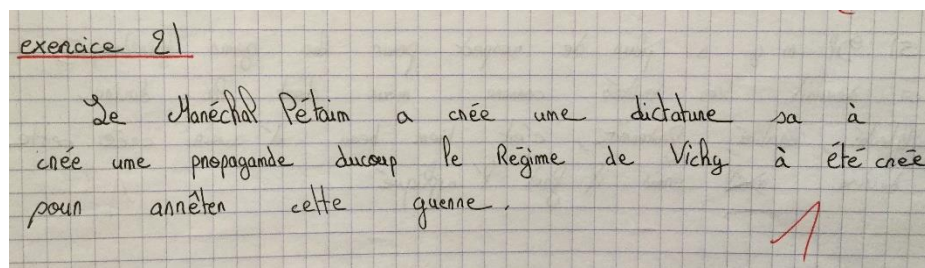 exercice 21
Le Maréchal Pétain a crée une dictature sa à
crée une propagande ducoup le Régime de Vichy à été crée
pour arrêter cette guerre.
1